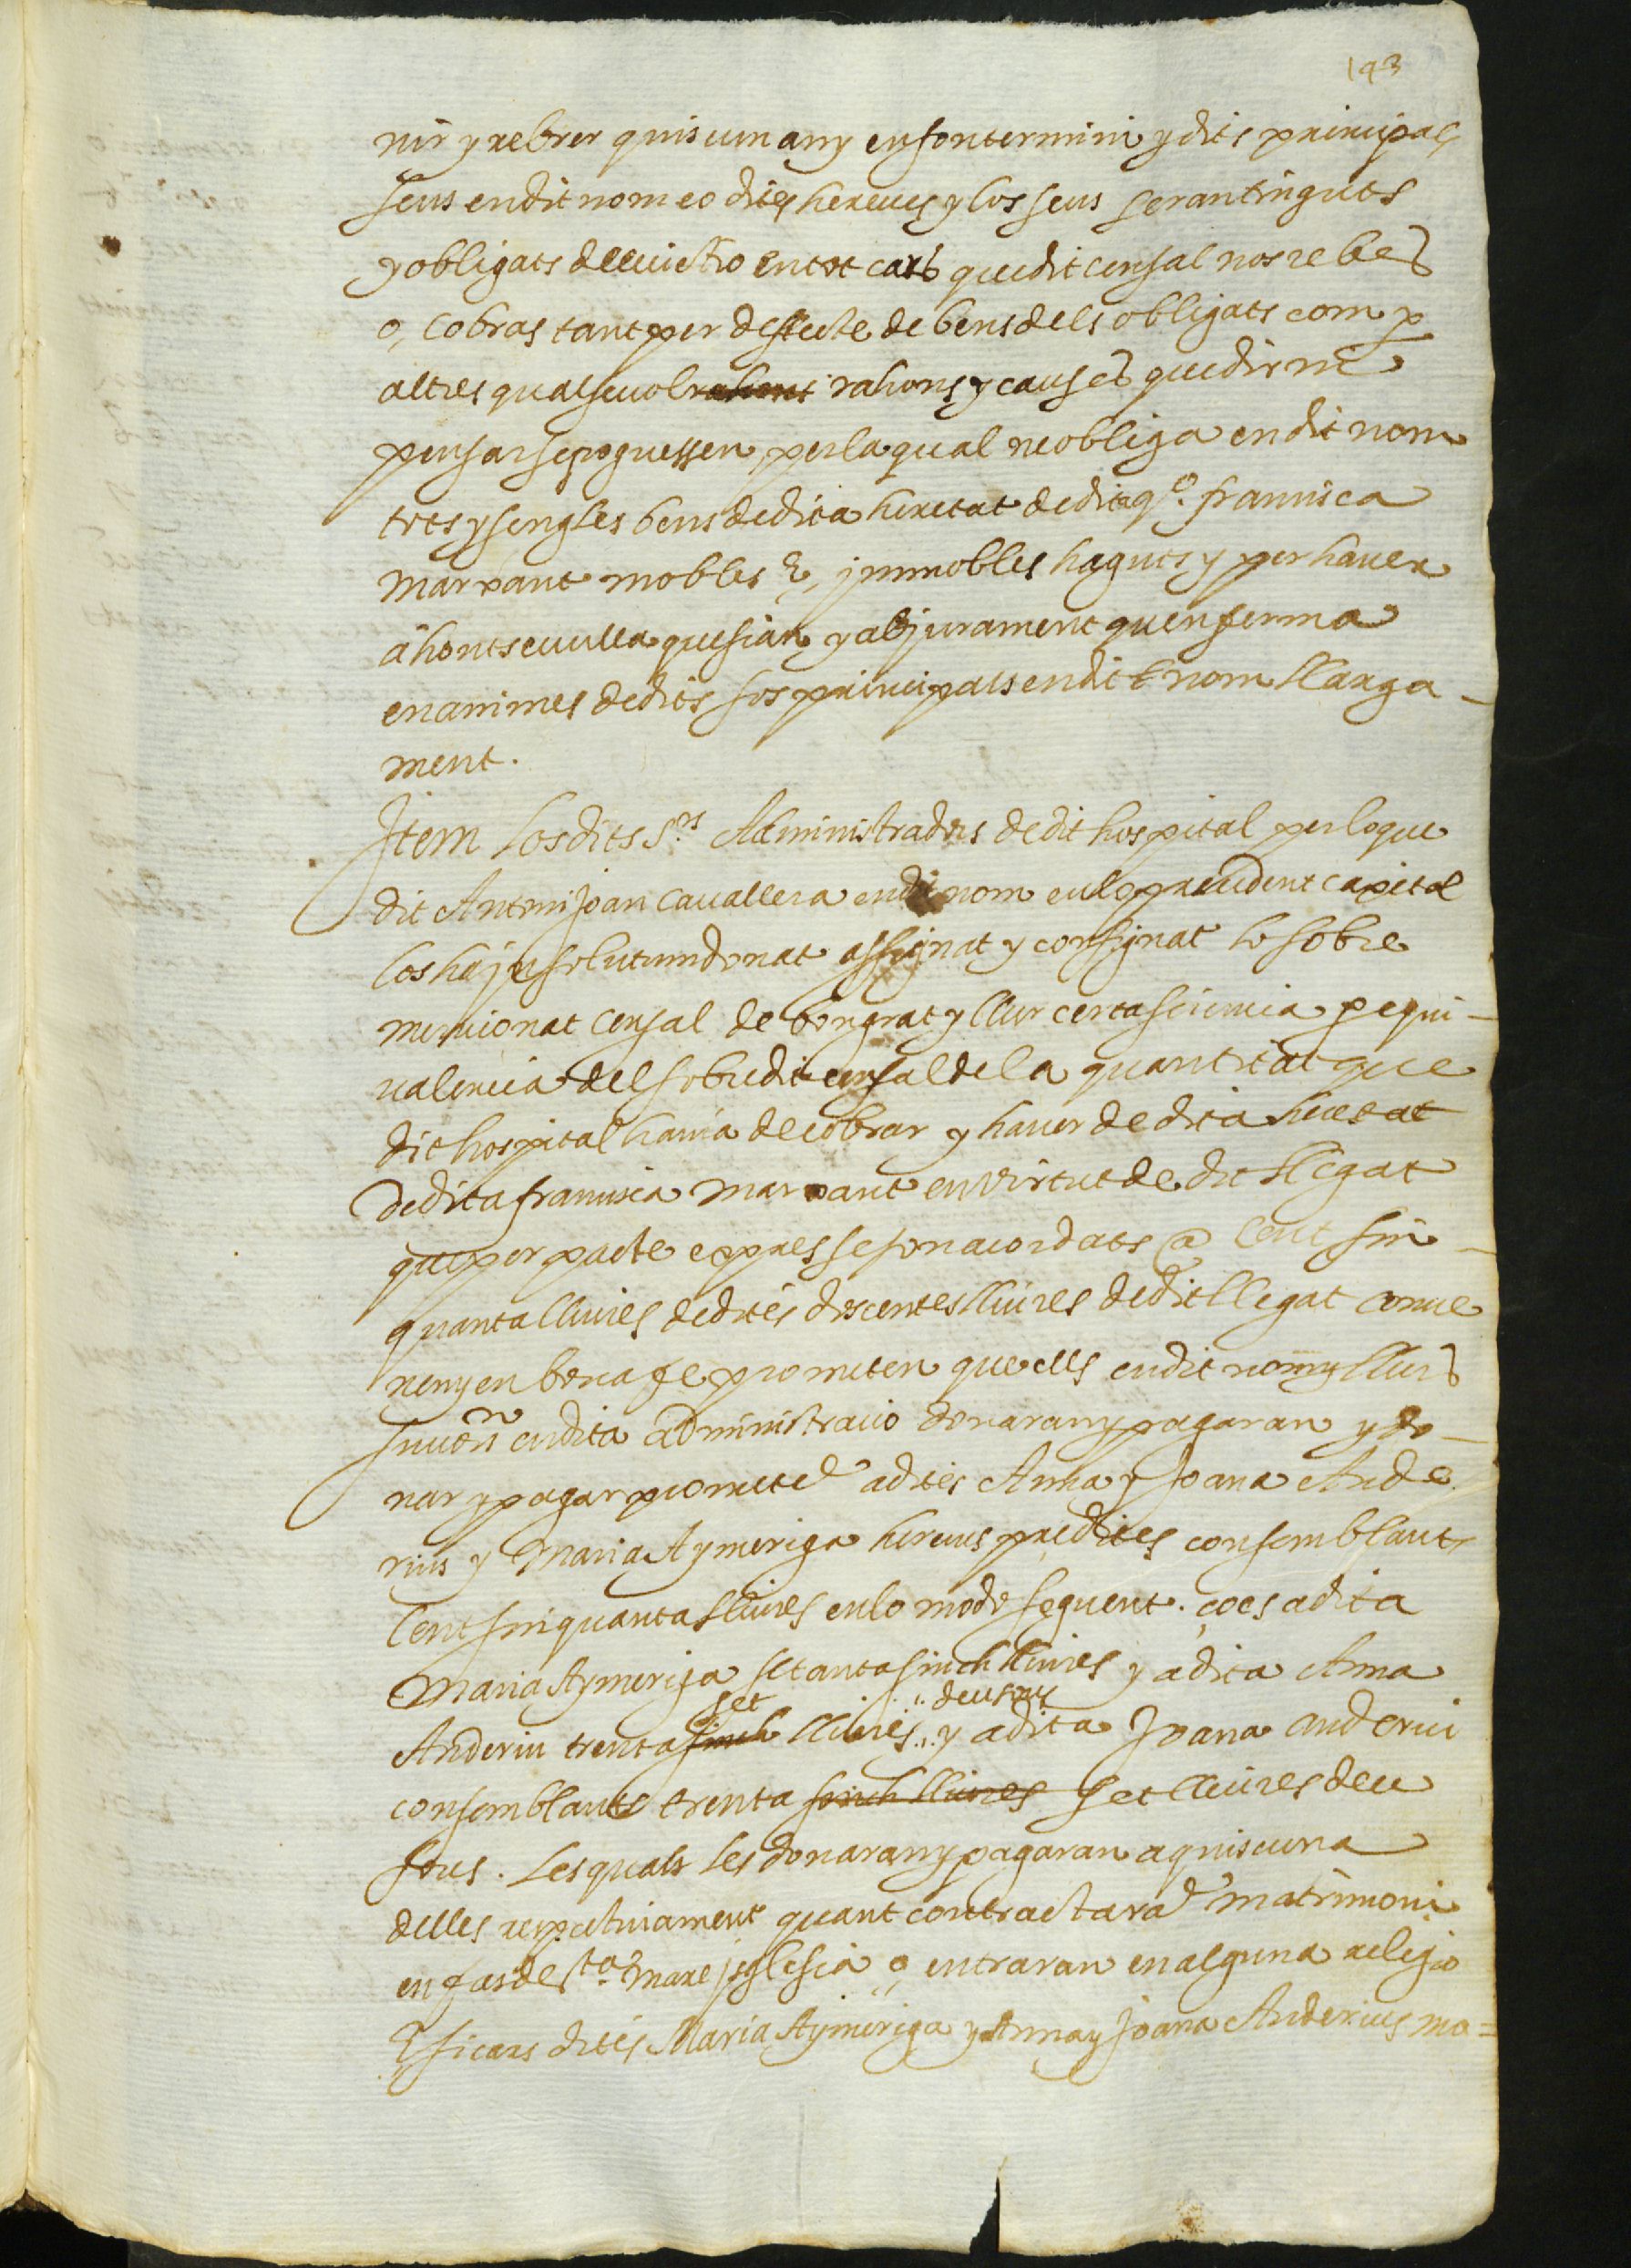 193
nir y rebrer quiscun any en son termini y dits principals
seus en dit nom eo dites hereves y los seus seran tinguts
y obligats de evictio en tot cars que dit censal nos rebes
o, cobras tant per deffecte de bens dels obligats com p
altres qualsevol rahons rahons y causes que dir ni
pensar se poguessen, per la qual ne obliga en dit nom
tots y sengles bens de dita heretat de dita qº. francisca
marxant mobles &, jmmobles haguts y per haver
a hont se vulla que sian y ab jurament quen ferma
en animes de dits sos principals en dit nom llarga-
ment.
Jtem los dits S.rs Administradors de dit hospital per lo que
dit Antoni Joan Cavallera en dit nom en lo precedent capitol
los ha jn solutum donat assignat y consignat lo sobre
mencionat censal de bon grat y llur certa sciencia p equi-
valencia del sobredit censal de la quantitat que
dit hospital havia de cobrar y haver de dita heretat
de dita francisca marxant en virtut de dit llegat
que per pacte expres se son acordats a Cent sin-
quanta lliures de dites doscentes lliures de dit llegat conve
nen y en bona fe prometen que ells en dit nom y llurs
successors en dita administracio donaran y pagaran y do-
nar y pagar prometen a dites Anna y Joana Ande
rius y Maria Aymeriga hereves predites consemblants
Cent sinquanta lliures en lo modo seguent. ço es a dita
Maria Aymeriga setanta sinch lliures y a dita Anna
Anderiu trenta sinch set lliures,, deu sous y a dita Joana anderiu
consemblants trenta sinch lliures set lliures deu
sous. Les quals les donaran y pagaran a quiscuna
delles respectivament quant contractara matrimoni
en fas de sta. mare jglesia o, entraran en alguna religio
E si cars dites Maria Aymeriga y Anna y Joana Anderius mo=